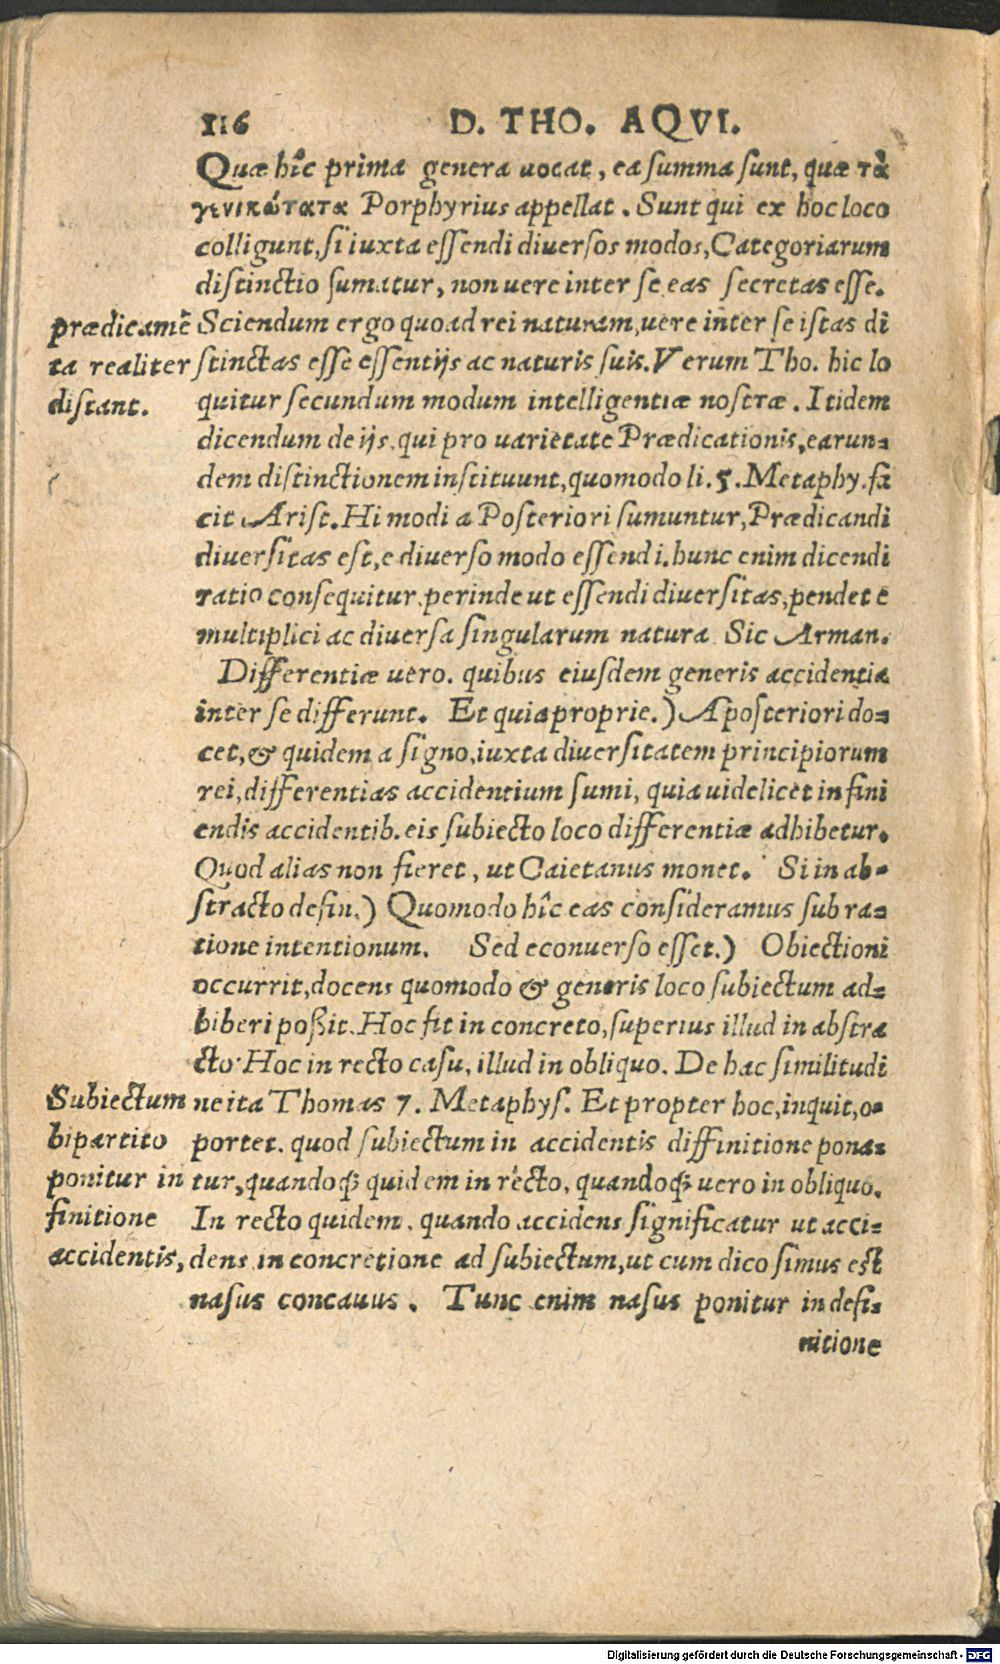 116 D. THO. AQVI.
Quæ hîc prima genera uocat, ea summa sunt, quæ τὰ
γενικώτατα Porphyrius appellat. Sunt qui ex hoc loco
colligunt, si iuxta essendi diuersos modos, Categoriarum
distinctio sumatur, non uere inter se eas secretas esse.
Sciendum ergo quoad rei naturam, uere inter se istas di
stinctas esse essentijs ac naturis suis. Verum Tho. hic lo
quitur secundum modum intelligentiæ nostræ. Itidem
dicendum de ijs. qui pro uarietate Prædicationis, earun-
dem distinctionem instituunt, quomodo li. 5. Metaphy. fa
cit Arist. Hi modi a Posteriori sumuntur, Prædicandi
diuersitas est, e diuerso modo essendi. hunc enim dicendi
ratio consequitur. perinde ut essendi diuersitas, pendet e
multiplici ac diuersa singularum natura Sic Arman.
Differentiæ uero. quibus eiusdem generis accidentia
inter se differunt. Et quia proprie.) A posteriori do-
cet, & quidem a signo, iuxta diuersitatem principiorum
rei, differentias accidentium sumi, quia uidelicet in fini
endis accidentib. eis subiecto loco differentiæ adhibetur.
Quod alias non fieret, ut Caietanus monet. Si in ab-
stracto defin.) Quomodo hîc eas consideramus sub ra-
tione intentionum. Sed econuerso esset.) Obiectioni
occurrit, docens quomodo & generis loco subiectum ad-
hiberi poßit. Hoc fit in concreto, superius illud in abstra
cto. Hoc in recto casu, illud in obliquo. De hac similitudi
ne ita Thomas 7. Metaphys. Et propter hoc, inquit, o-
portet. quod subiectum in accidentis diffinitione pona-
tur, quandoq; quidem in recto, quandoq; uero in obliquo.
In recto quidem. quando accidens significatur ut acci-
dens in concretione ad subiectum, ut cum dico simus est
nasus concauus. Tunc enim nasus ponitur in defi-
nitione
prædicamē
ta realiter
distant.
Subiectum
bipartito
ponitur in
finitione
accidentis,
Digitalisierung gefördert durch die Deutsche Forschungsgemeinschaft - DFG